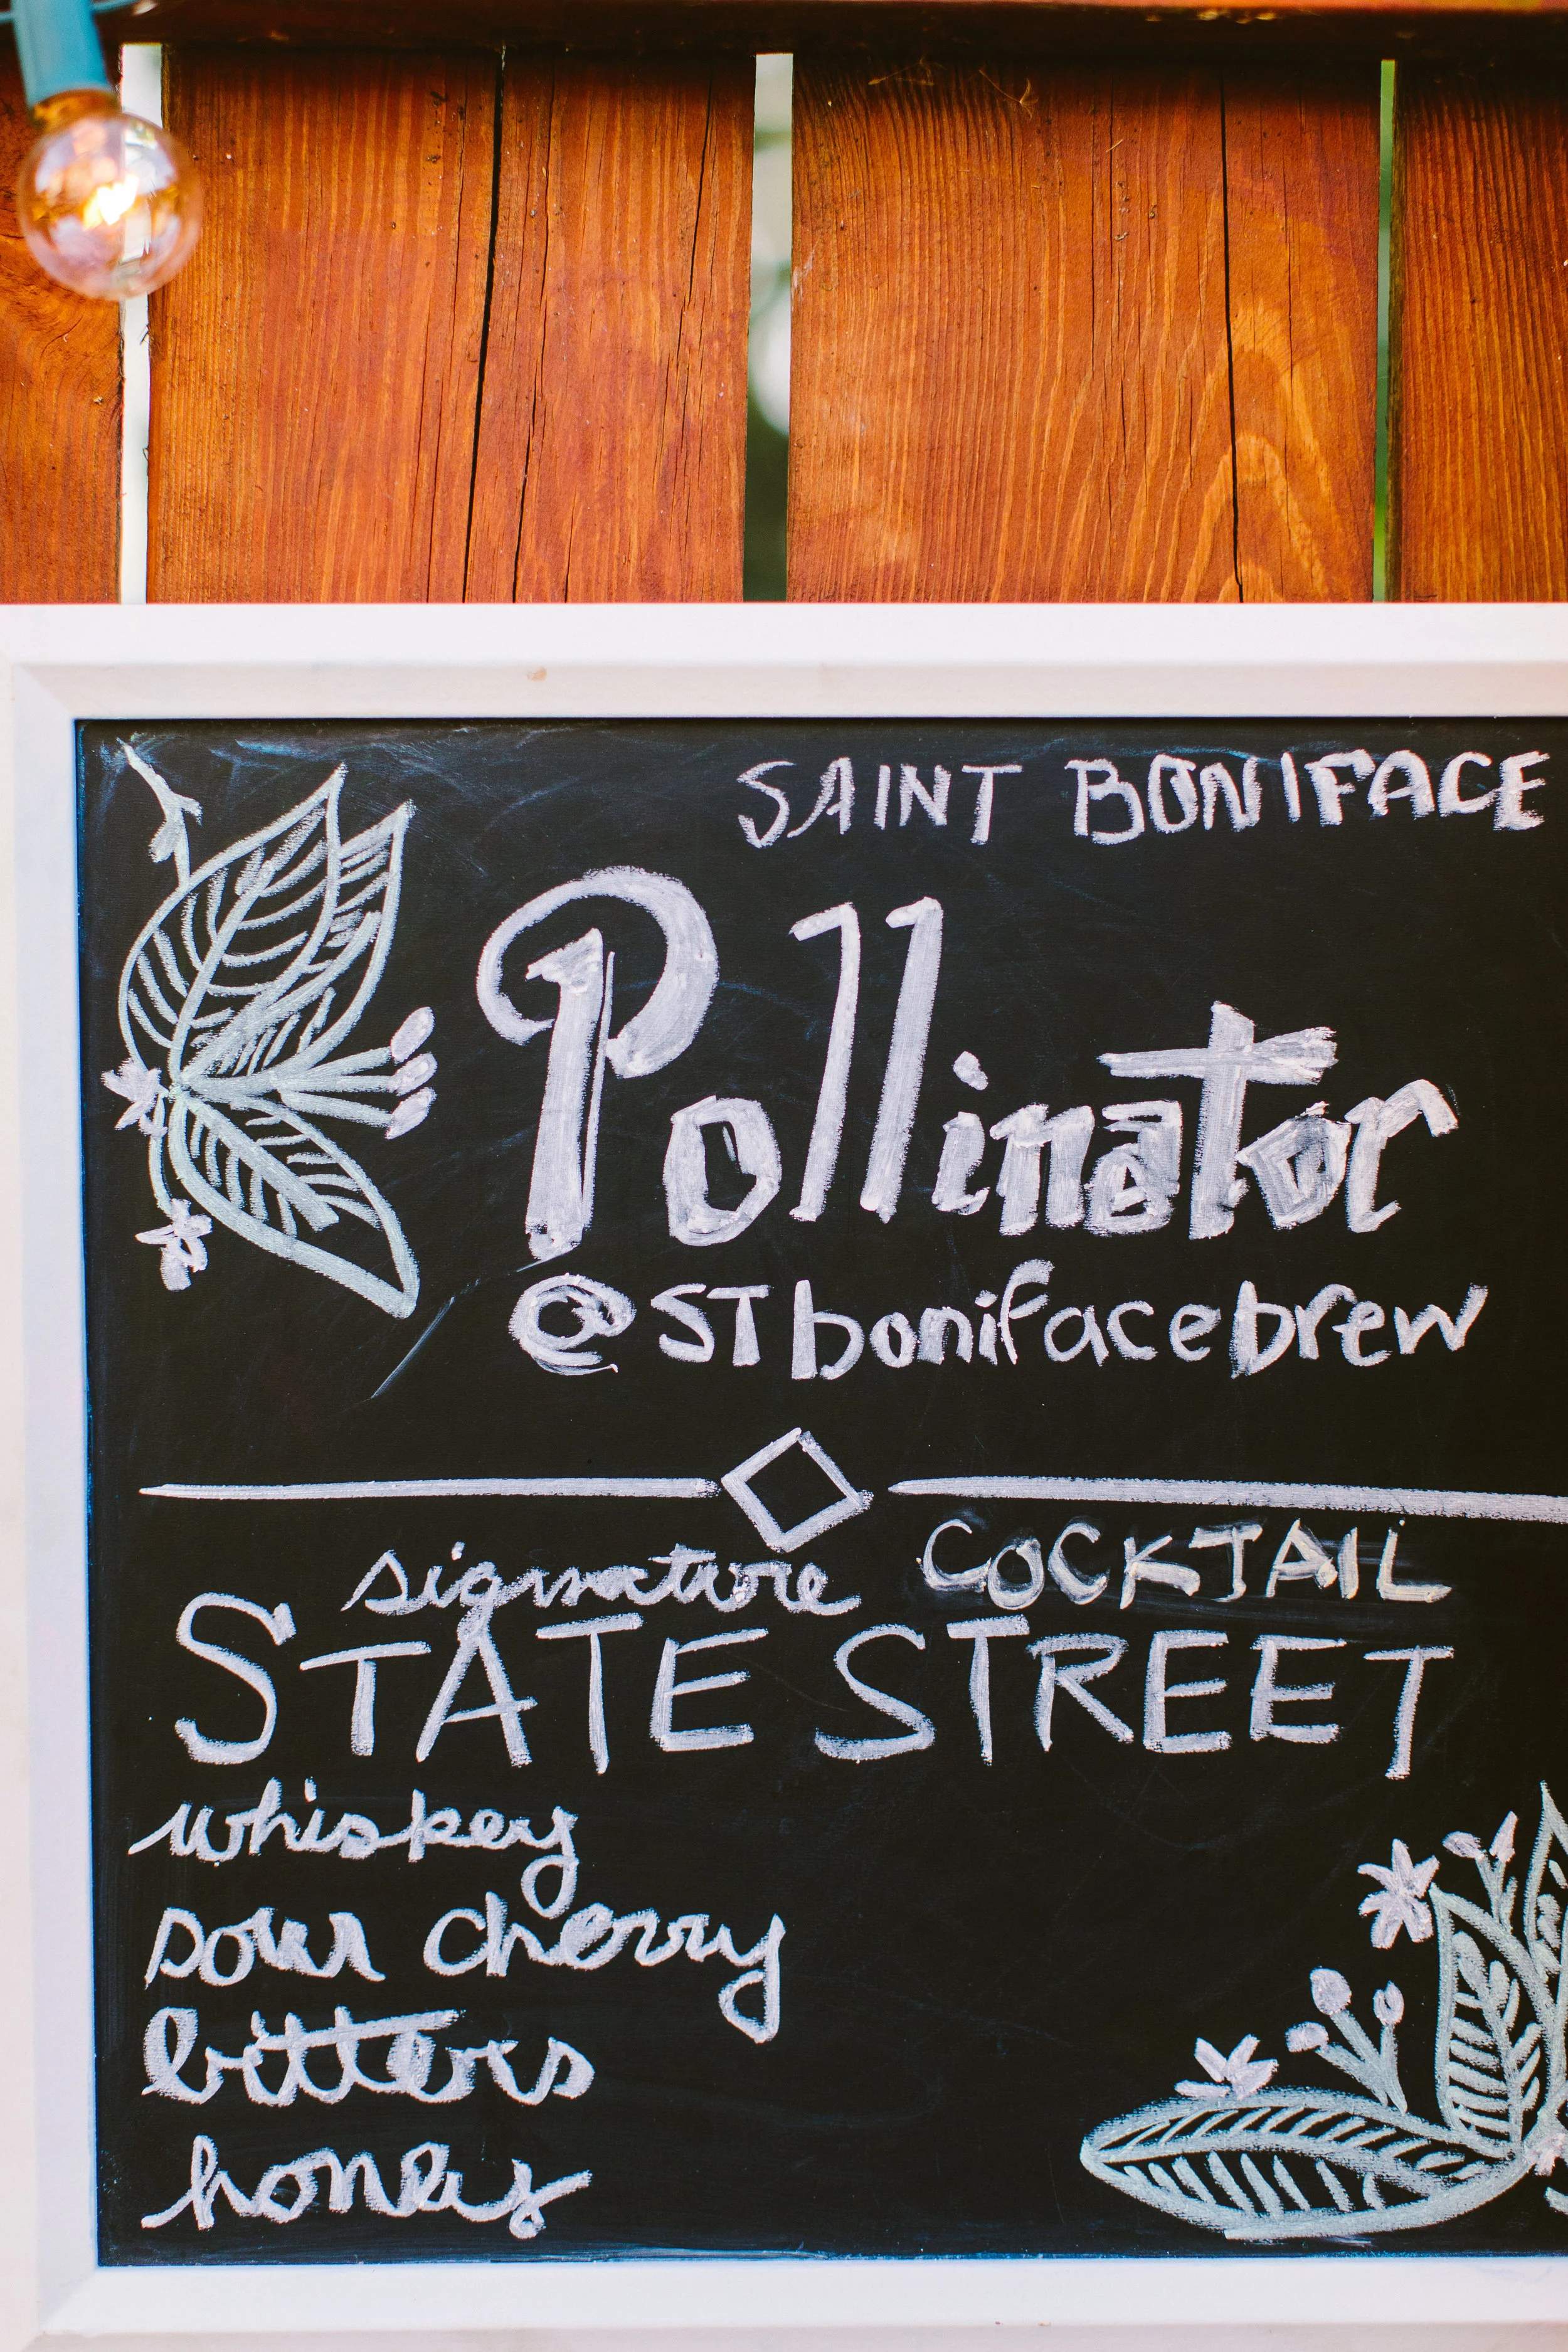 SAINT BONIFACE
Pollinator
@STbonifacebrew
signature COCKTAIL
STATE STREET
whiskey
sour cherry
bitters
honey